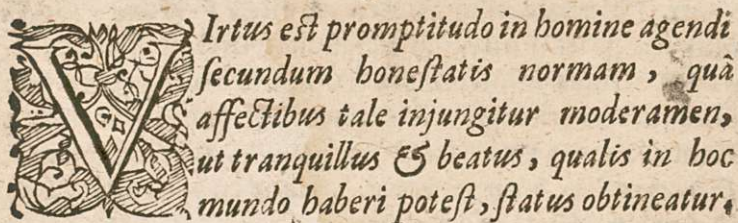 VIrtus est promptitudo in homine agendi
secundum honestatis normam, quâ
affectibus tale injungitur moderamen,
ut tranquillus & beatus, qualis in hoc
mundo haberi potest, status obtineatur.